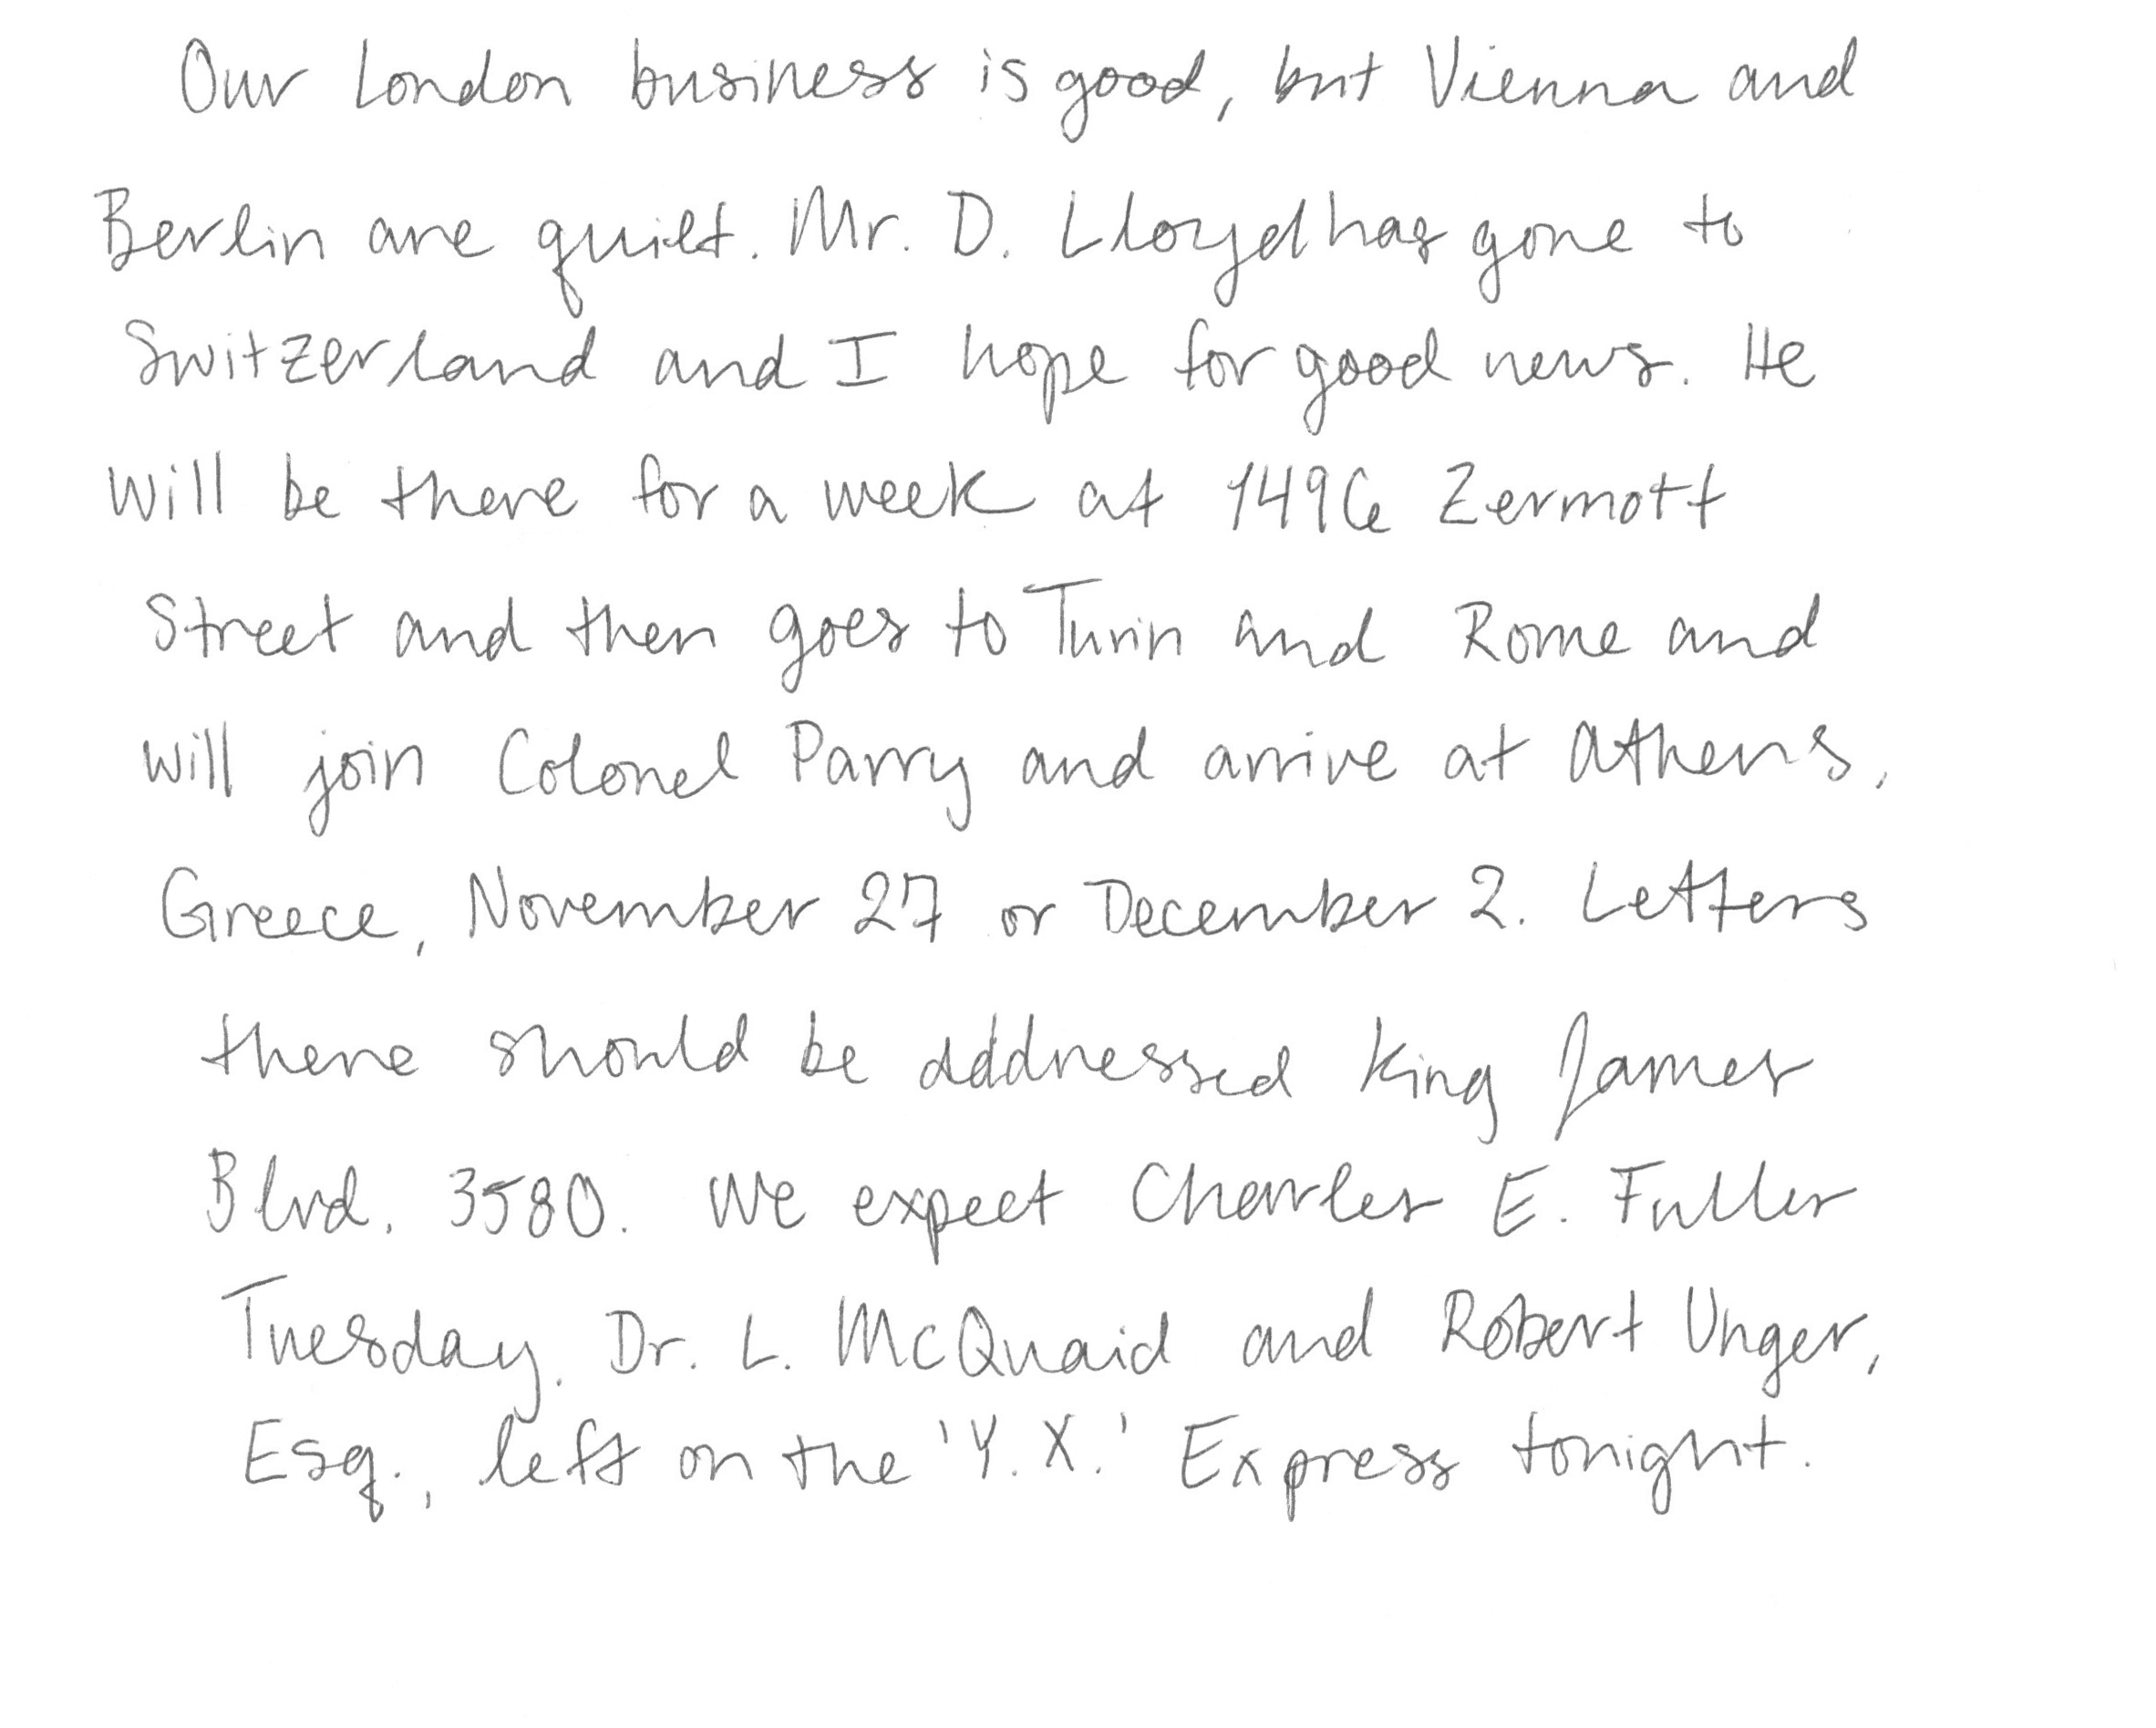 Our London business is good, but Vienna and
Berlin are quilt. Mr. D. Lloyd has gone to
Switzerland and I hope for good news. He
will be there for a week at 1496 Zermott
Street and then goes to Turin and Rome and
will join Colonel Parry and arrive at Athens,
Greece, November 27 or December 2. Letters
there should be addressed King James
Blvd. 3580. We expect Charles E. Fuller
Tuesday. Dr. L. McQuaid and Robert Unger,
Esq., left on the 'Y. X.' Express tonight.